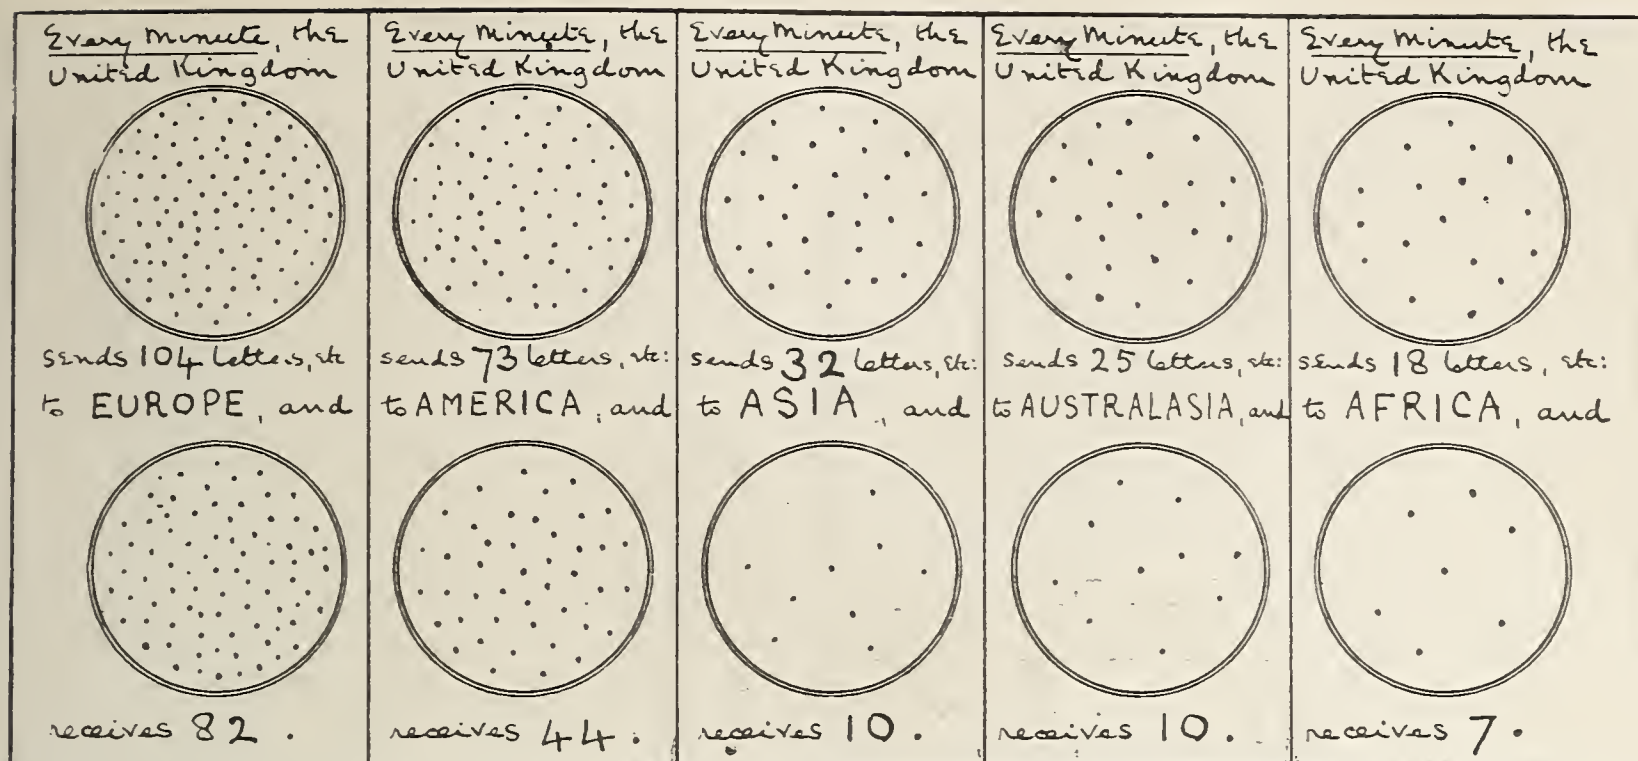 Every Minute, the
United Kingdom
sends 104 letters, etc
to EUROPE, and
receives 82.
Every Minute, the
United Kingdom
sends 73 letters, etc:
to AMERICA, and
receives 44.
Every Minute, the
United Kingdom
sends 32 letters, etc:
to ASIA, and
receives 10.
Every Minute, the
United Kingdom
sends 25 letters, etc:
to AUSTRALASIA, and
receives 10.
Every Minute, the
United Kingdom
sends 18 letters, etc:
to AFRICA, and
receives 7.